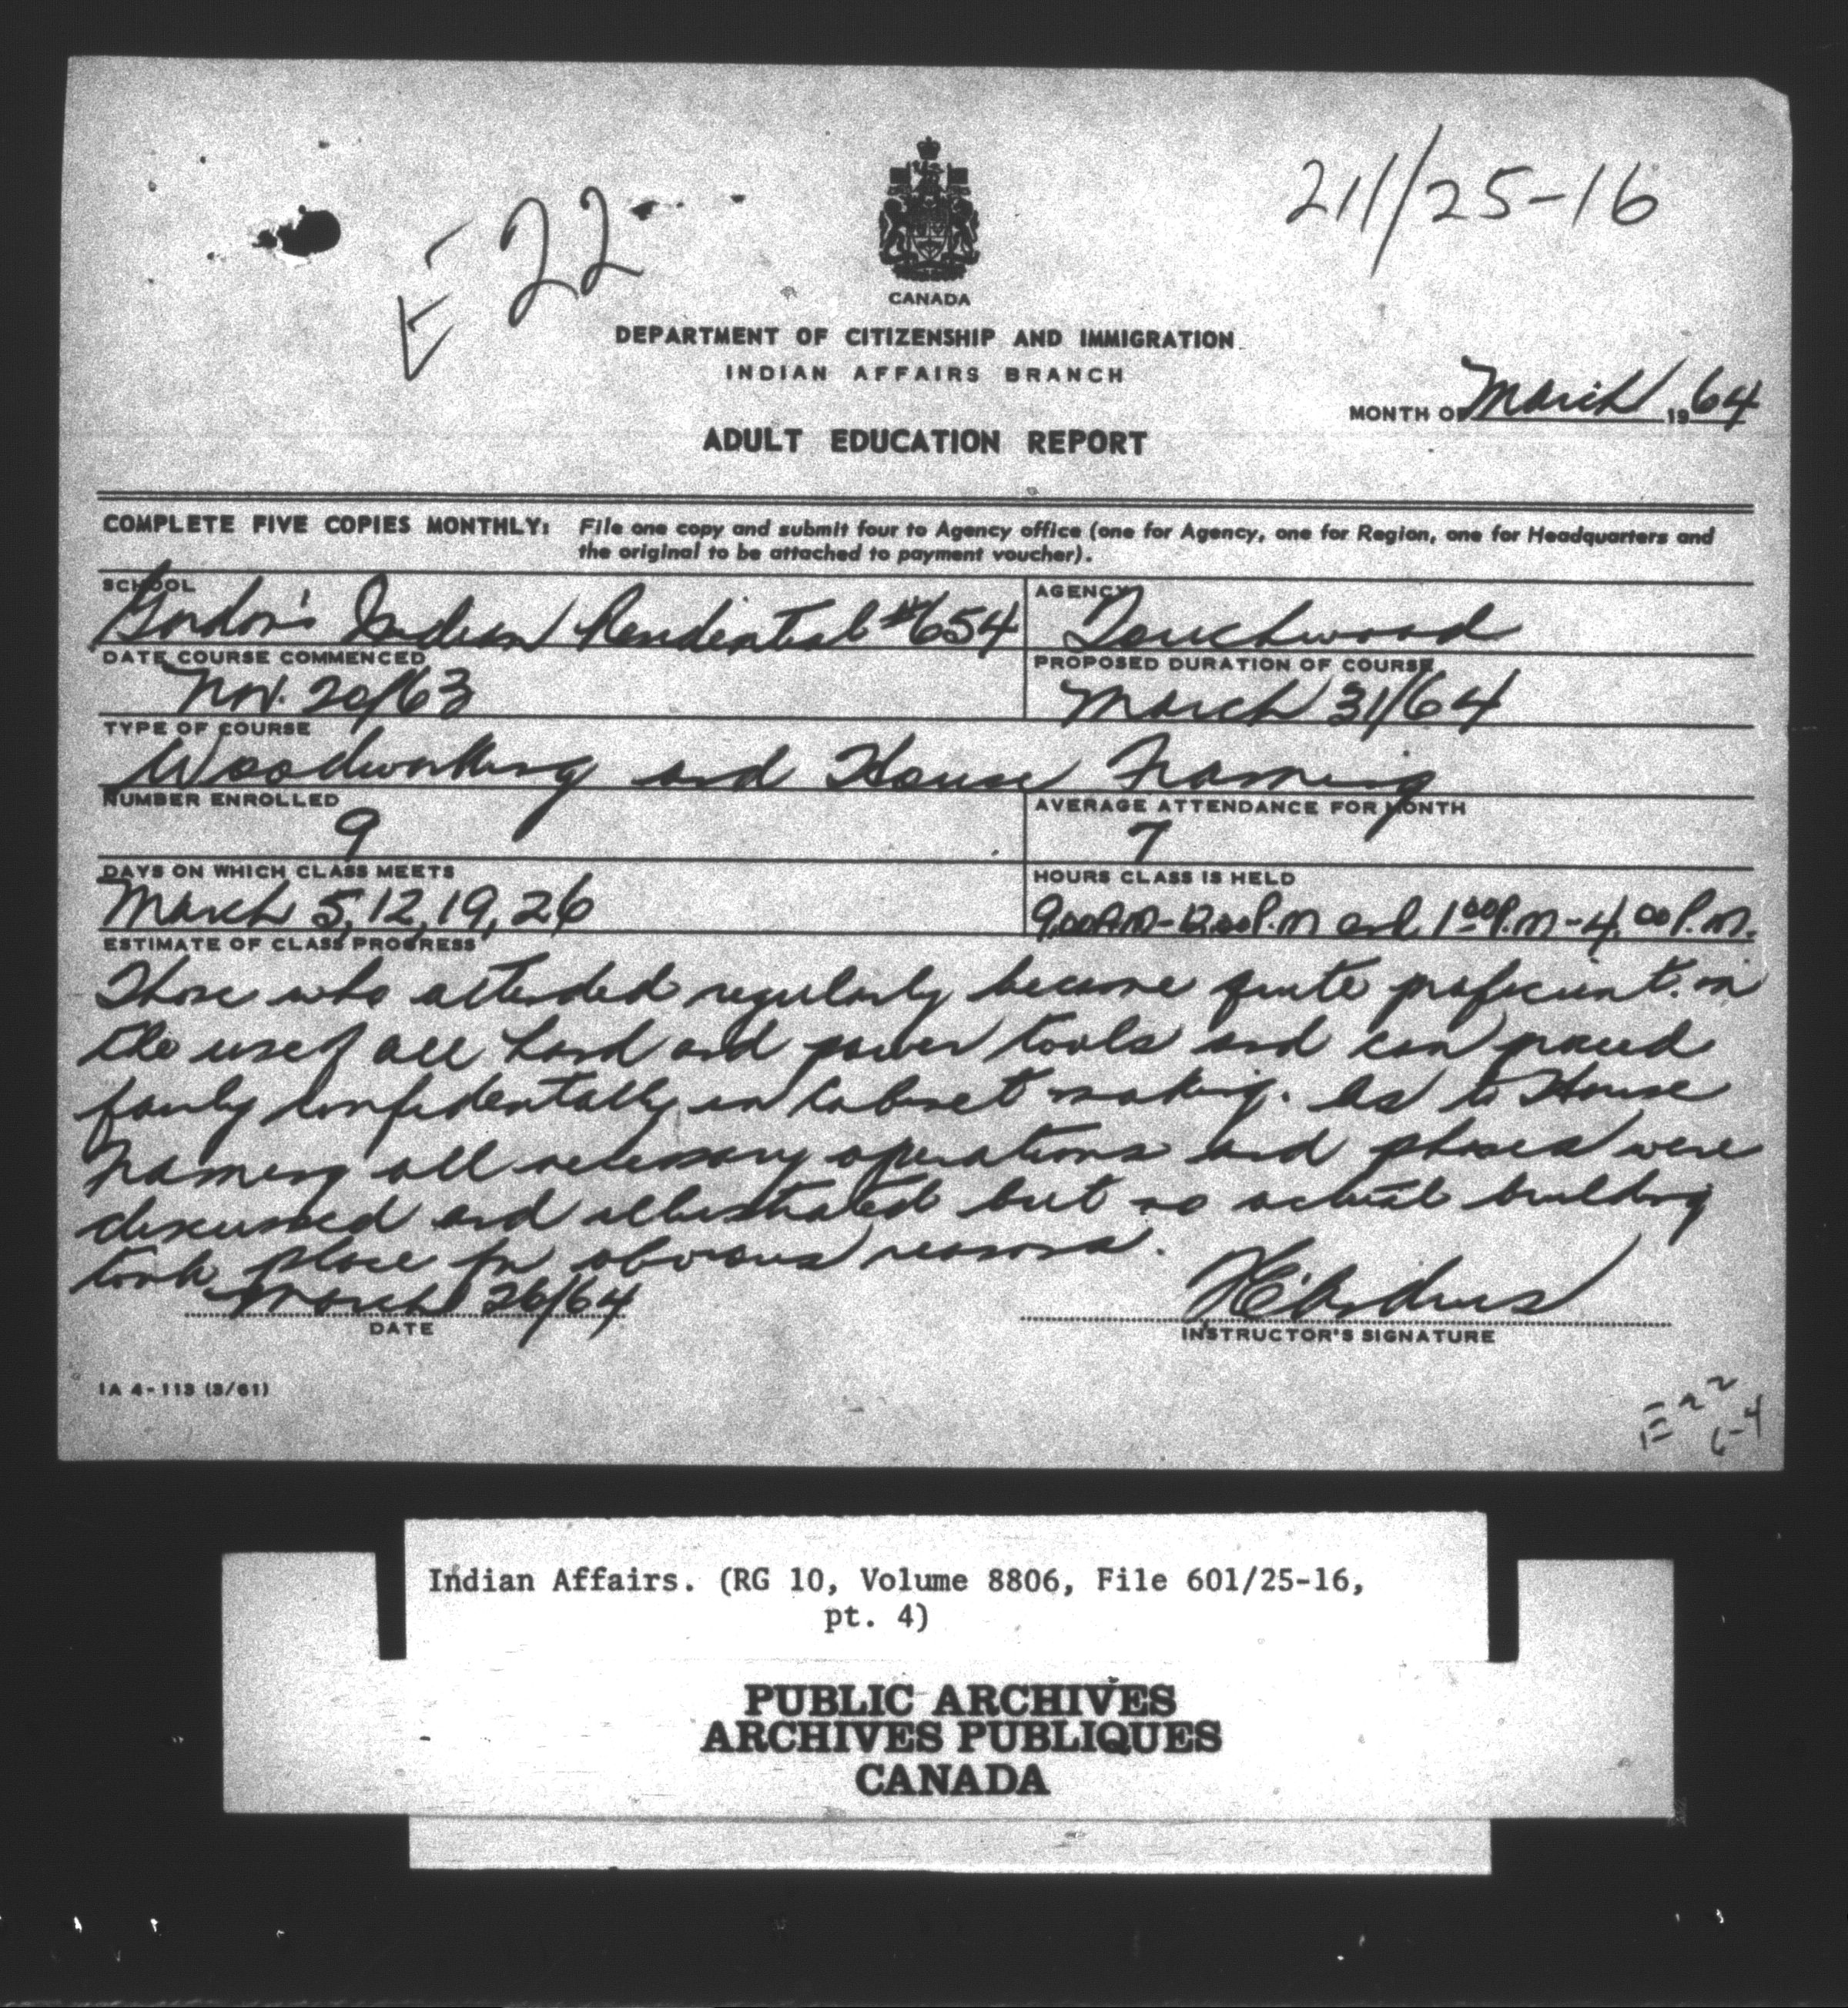 211/25-16
E-22
CANADA
DEPARTMENT OF CITIZENSHIP AND IMMIGRATION
INDIAN AFFAIRS BRANCH
MONTH OF March 1964
ADULT EDUCATION REPORT
COMPLETE FIVE COPIES MONTHLY: File one copy and submit four to Agency office (one for Agency, one for Region, one for Headquarters and
the original to be attached to payment voucher).
SCHOOL
Gordon's Indian Residential #654
AGENCY
Touchwood
DATE COURSE COMMENCED
Nov. 20/63
PROPOSED DURATION OF COURSE
March 31/64
TYPE OF COURSE
Woodworking and House Framing
NUMBER ENROLLED
9
AVERAGE ATTENDANCE FOR MONTH
7
DAYS ON WHICH CLASS MEETS
March 5, 12, 19, 26
HOURS CLASS IS HELD
9.00 A.M - 12.00 P.M and 1.00 P.M - 4.00 P.M.
ESTIMATE OF CLASS PROGRESS
Those who attended regularly became quite proficient in
the use of all hand and power tools and can proceed
fairly confidentally in cabinet making. As to House
Framing all necessary operations and phases were
discussed and illustrated but no actual building
took place for obvious reasons.
March 26/64
DATE
INSTRUCTOR'S SIGNATURE
IA 4-113 (3/61)
E 22
6-4
Indian Affairs. (RG 10, Volume 8806, File 601/25-16,
pt. 4)
PUBLIC ARCHIVES
ARCHIVES PUBLIQUES
CANADA